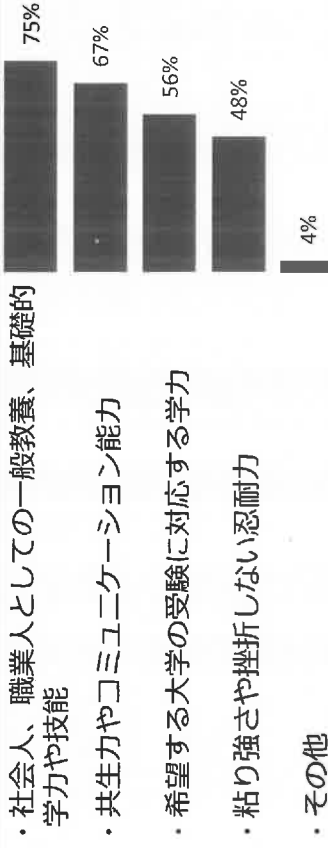 ・社会人、職業人としての一般教養、基礎的
学力や技能
75%
・共生力やコミュニケーション能力
67%
・希望する大学の受験に対応する学力
56%
・粘り強さや挫折しない忍耐力
48%
・その他
4%